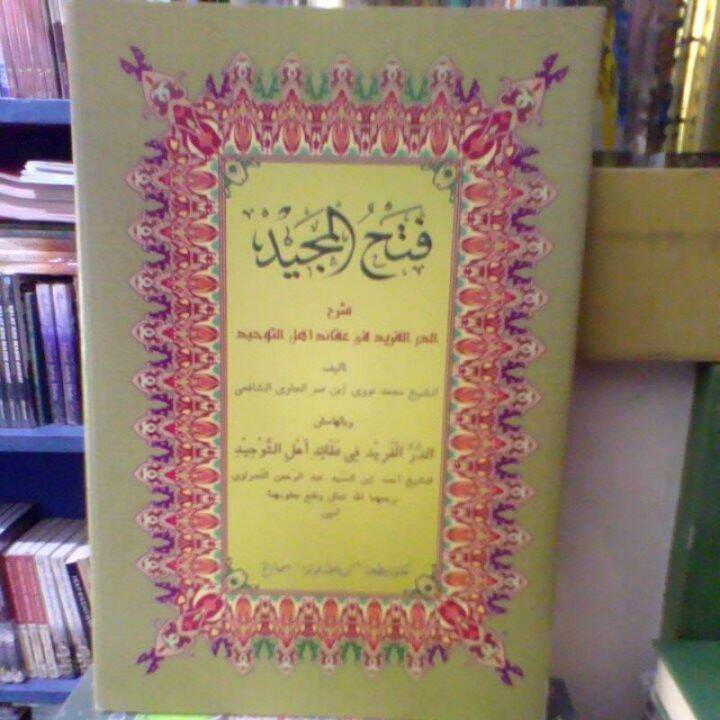 فَتْحُ المَجِيْد
شرح
الدر الفريد فى عقائد أهل التوحيد
تأليف
الشيخ محمد نووى ابن عمر الجاوى الشافعى
وبالهامش
الدُّرُّ الْفَرِيْد فِى عَقَائِدِ أَهْلِ التَّوْحِيْدِ
للشيخ أحمد ابن السيد عبد الرحمن النحراوى
رحمهما الله تعالى ونفع بعلومهما
آمين